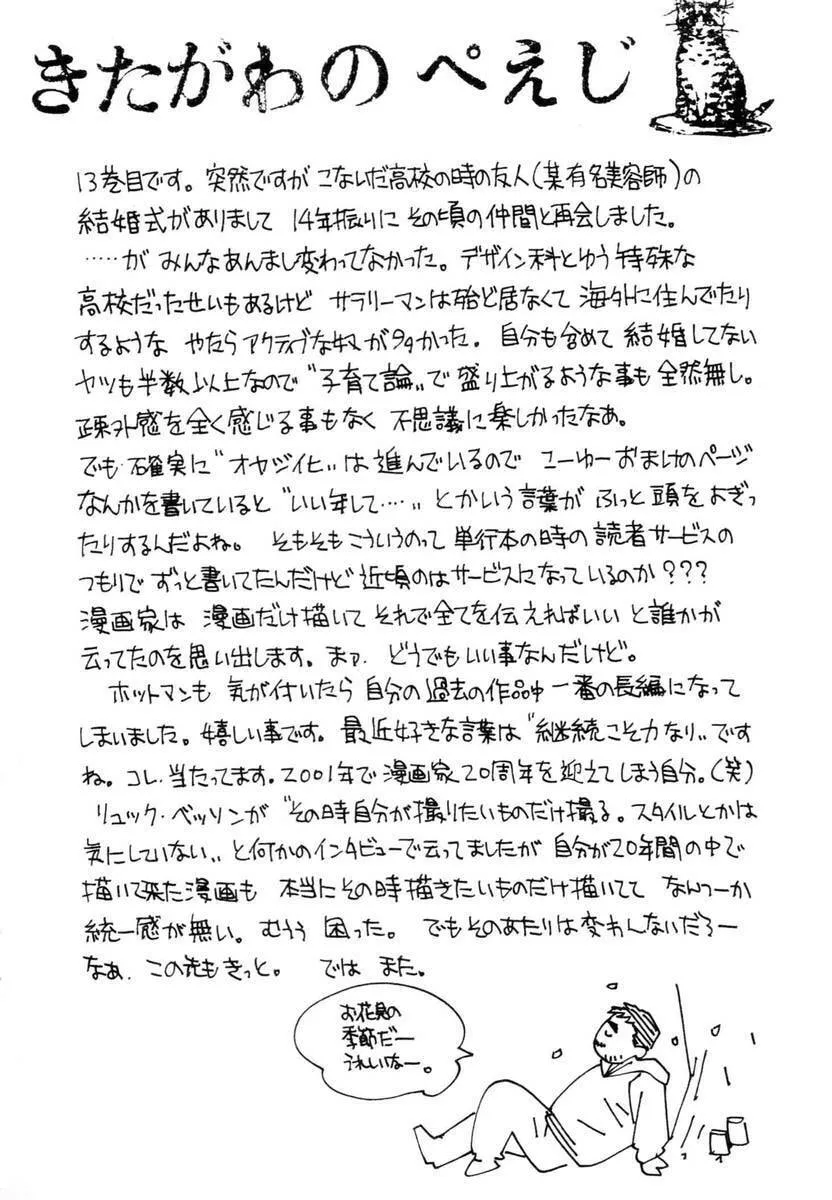 きたがわの ぺえじ
13巻目です。突然ですが こないだ高校の時の友人(某有名美容師)の
結婚式がありまして 14年振りに その頃の仲間と再会しました。
……が みんなあんまし変わってなかった。デザイン科とゆう特殊な
高校だったせいもあるけど サラリーマンは殆ど居なくて 海外に住んでたり
するような やたらアクティブな奴が多かった。自分も含めて 結婚してない
ヤツも半数以上なので〝子育て論〟で 盛り上がるような事も 全然無し。
疎外感を全く感じる事もなく 不思議に楽しかったなあ。
でも 確実に〝オヤジイ化〟は 進んでいるので こーゆー おまけのページ
なんかを書いていると〝いい年して…〟とかいう言葉が ふっと頭をよぎっ
たりするんだよね。 そもそもこういうのって 単行本の時の読者サービスの
つもりで ずっと書いてたんだけど 近頃のはサービスになっているのか???
漫画家は 漫画だけ描いて それで全てを伝えればいい と誰かが
云ってたのを思い出します。まァ. どうでもいい事なんだけど。
ホットマンも 気が付いたら 自分の過去の作品中 一番の長編になって
しまいました。嬉しい事です。最近好きな言葉は〝継続こそ力なり〟です
ね。コレ.当たってます。2001年で漫画家20周年を迎えてしまう自分。(笑)
リュック・ベッソンが〝その時自分が撮りたいものだけ撮る。スタイルとかは
気にしていない〟と何かのインタビューで云ってましたが 自分が20年間の中で
描いて来た漫画も 本当にその時描きたいものだけ描いてて なんつーか
統一感が無い。むうう 困った。 でもそのあたりは変わんないだろー
なぁ. この先もきっと。 では また。
お花見の
季節だー
うれしいなー。